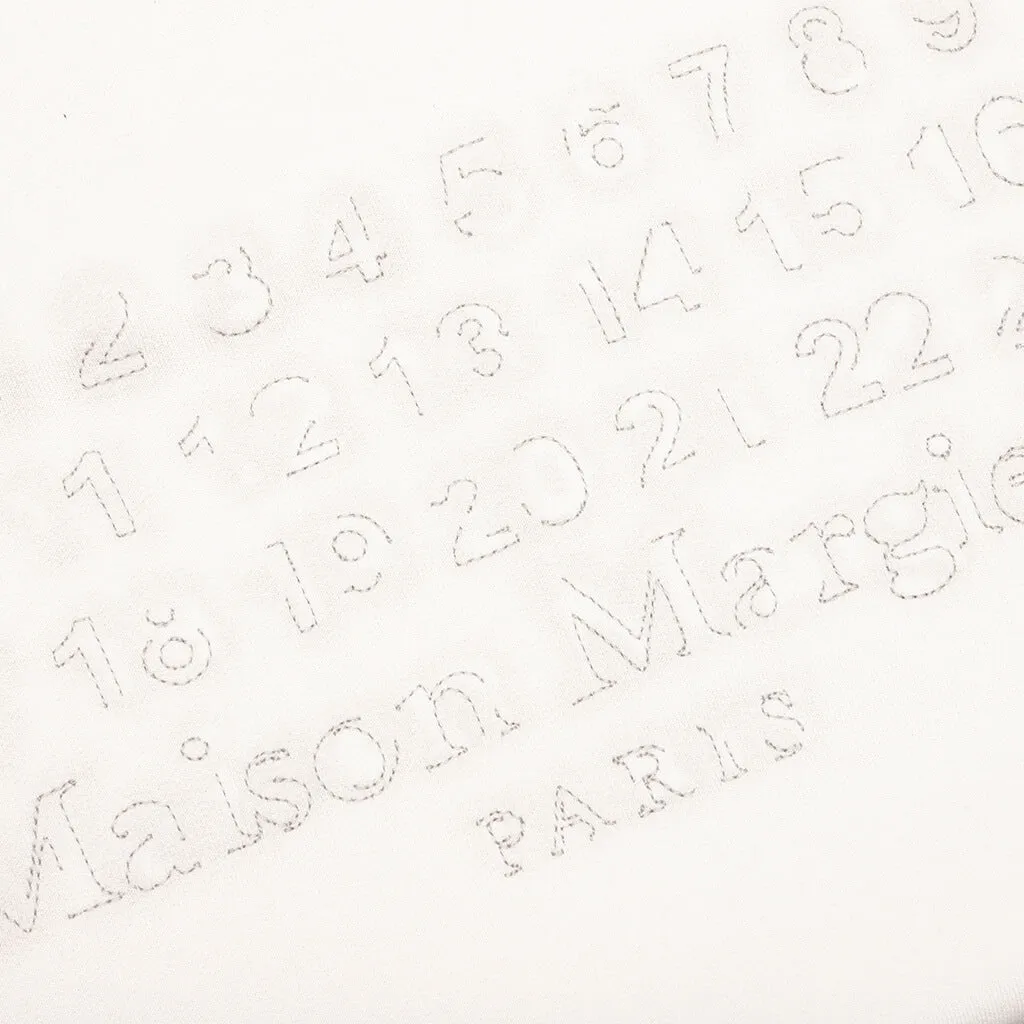 2 3 4 5 6 7 8 9
1 12 13 14 15 16
18 19 20 21 22 2
Maison Margie
PARIS